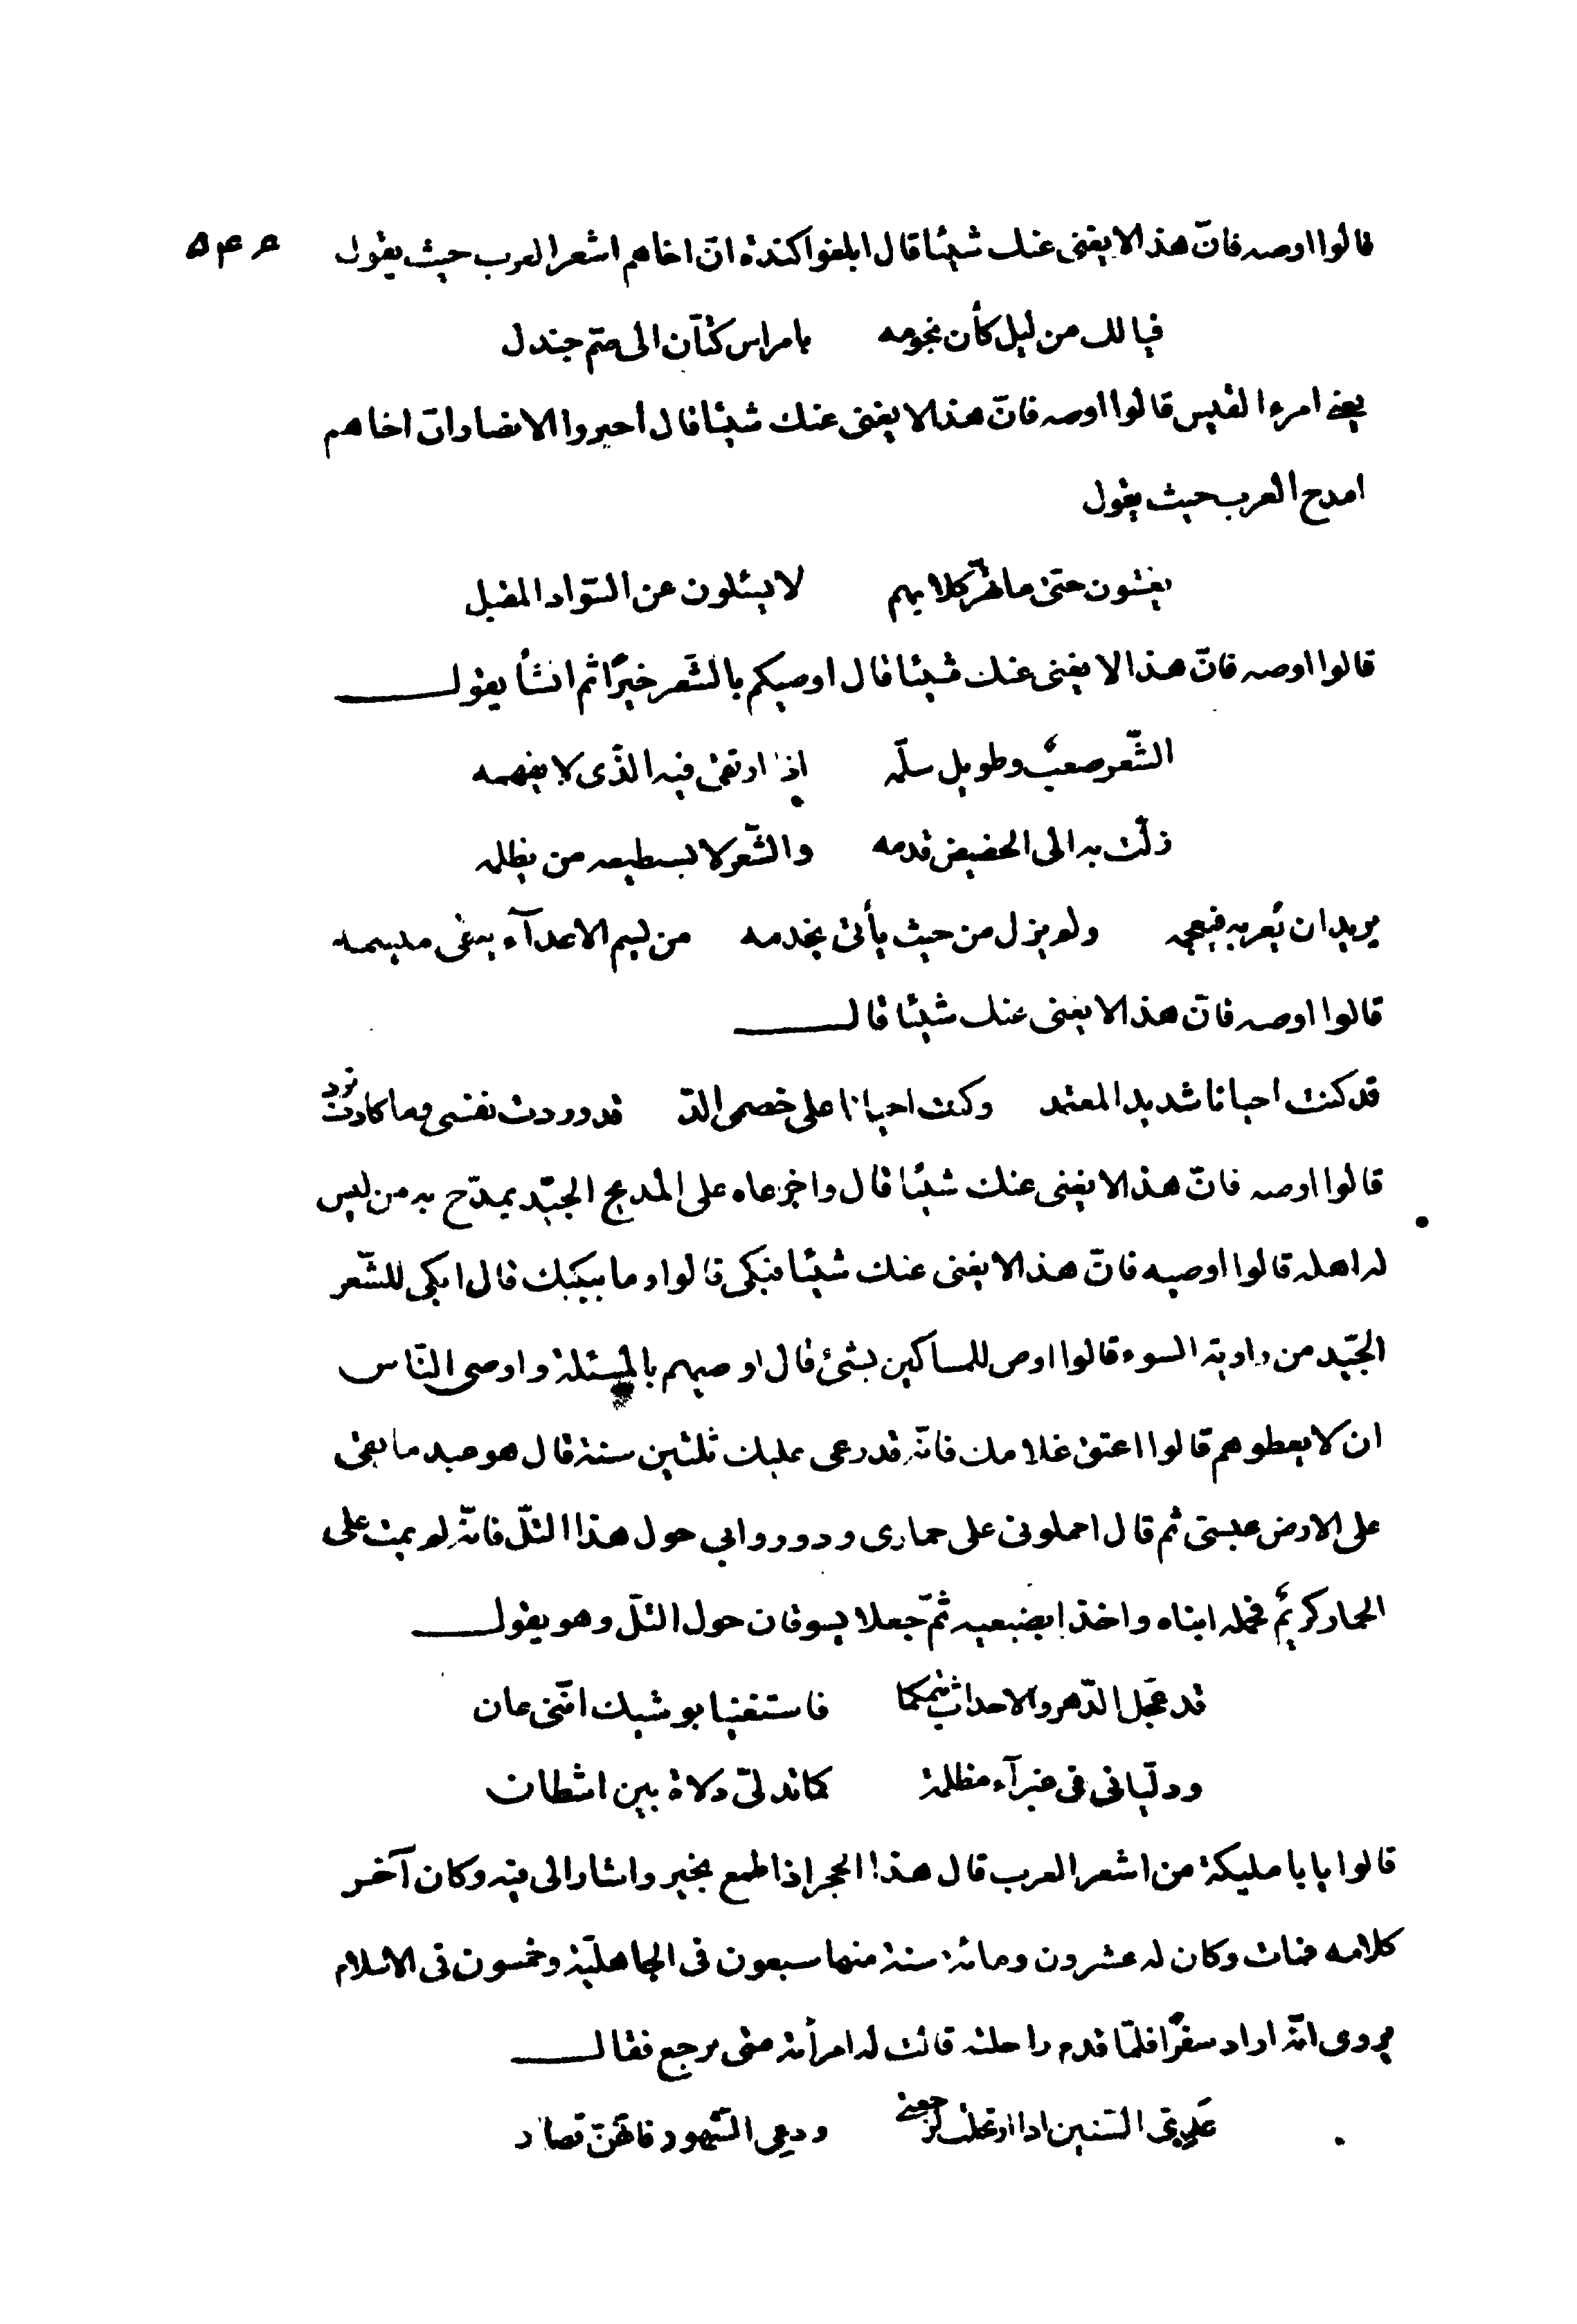 قالوا اوصه فانّ هذا لا يغنى عنك شيئا قال ابلغوا كندة انّ اخاهم اشعر العرب حيث يقول ۵۴۶
فيا لك من ليل كأن نجومه بامراس كتّان الى صمّ جندل
يعنى امرء القيس قالوا اوصه فانّ هذا لا يغنى عنك شيئا قال أخبروا الانصار انّ اخاهم
امدح العرب حيث يقول
يغشون حتى ما تهرّ كلابهم لا يسئلون عن السّواد المقبل
قالوا اوصه فانّ هذا لا يغنى عنك شيئا قال اوصيكم بالشّعر خيرًا ثم انشأ يقول
الشّعر صعبٌ وطويل سلّمه اذا ارتقى فيه الذّى لا يفهمه
زلّت به الى الحضيض قدمه والشّعر لا يسطيعه من يظلمه
يريد ان يُعربه فيعجمه ولم يزل من حيث يأتى يخدمه من يسم الاعدآء يبقى ميسمه
قالوا اوصه فانّ هذا لا يغنى عنك شيئا قال
قد كنت احيانا شديد المعتمد وكنت احيانا على خصمى الدّ قد وردت نفسى وما كادت ترد
قالوا اوصه فانّ هذا لا يغنى عنك شيئا قال واجزعاه على المديح الجيّد يمدّح به من ليس
له اهله قالوا اوصيه فانّ هذا لا يغنى عنك شيئا فبكى قالوا وما يبكيك قال ابكى للشّعر
الجيّد من راوية السوء قالوا اوص للمساكين بشئ قال اوصيهم بالمسئلة واوصى النّاس
ان لا يعطوهم قالوا اعتق غلامك فانّه قد رعى عليك ثلثين سنة قال هو عبد ما بقى
على الارض عبسىّ ثم قال احملونى على حمارى ودوروا بي حول هذا التلّ فانّه لم يمت على
الحمار كريمٌ فحمله ابناه واخذا بضبعيه ثمّ جعلا يسوقان حول التلّ وهو يقول
قد عجّل الدّهر والاحداث يتمكما فاستغنيا بوشيك انّنى عان
ودلّيانى فى غبرآء مظلمة كما تدلّى دلاة بين اشطان
قالوا يا با مليكة من اشعر العرب قال هذا الحجر اذا طمع بخير واشار الى فيه وكان آخر
كلامه فمات وكان له عشرون ومائة سنة منها سبعون فى الجاهليّة وخمسون فى الاسلام
يروى انّه اراد سفرًا فلمّا قدم راحلته قالت له امرأته متى ترجع فقال
عدّى السّنين اذا ارتحلت لرجعتى ودعى الشّهور فانّهنّ قصار